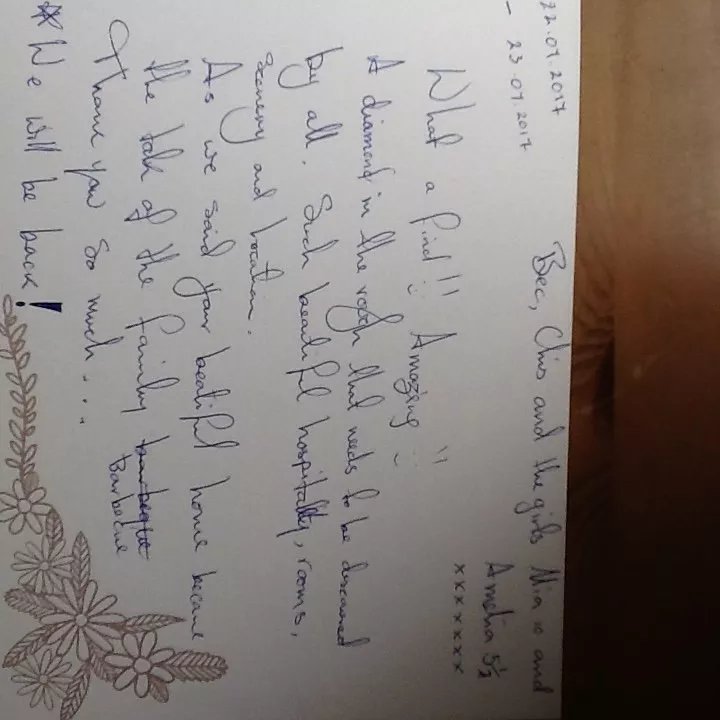 22.07.2017
- 23.07.2017
Bec, Chris and the girls Mia 10 and
Amelia 5½
xxxxxxx
What a find!! Amazing!!
A diamond in the rough that needs to be discovered
by all. Such beatiful hospitality, rooms,
Scenery and location.
As we said your beatiful home became
the talk of the family barbeque
Barbecue
Thank you so much...
We will be back!